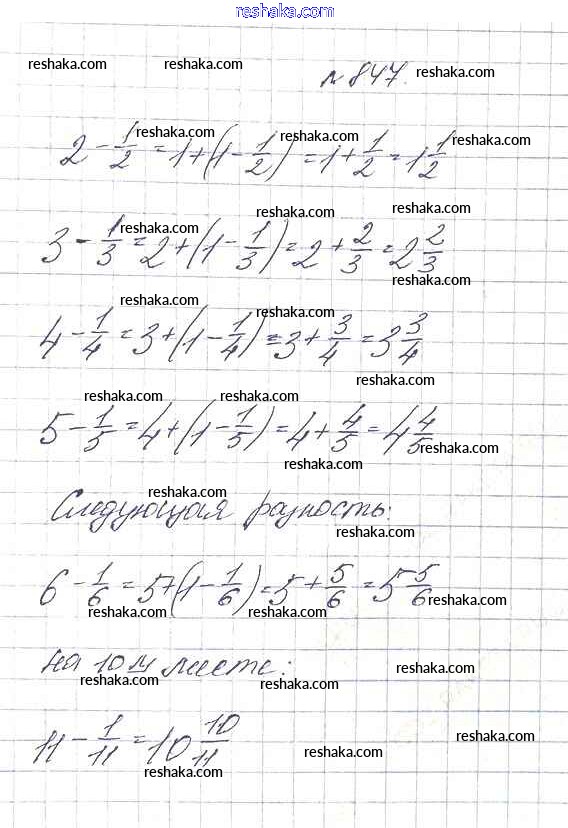 reshaka.com
reshaka.com reshaka.com
№ 847. reshaka.com
reshaka.com reshaka.com reshaka.com
2 - 1/2 = 1 + (1 - 1/2) = 1 + 1/2 = 1 1/2
reshaka.com reshaka.com
reshaka.com
3 - 1/3 = 2 + (1 - 1/3) = 2 + 2/3 = 2 2/3
reshaka.com
reshaka.com reshaka.com
4 - 1/4 = 3 + (1 - 1/4) = 3 + 3/4 = 3 3/4
reshaka.com
reshaka.com reshaka.com
5 - 1/5 = 4 + (1 - 1/5) = 4 + 4/5 = 4 4/5
reshaka.com
reshaka.com
reshaka.com
Следующая разность:
reshaka.com
6 - 1/6 = 5 + (1 - 1/6) = 5 + 5/6 = 5 5/6
reshaka.com reshaka.com reshaka.com
на 10м месте:
reshaka.com reshaka.com reshaka.com
11 - 1/11 = 10 10/11
reshaka.com reshaka.com
reshaka.com